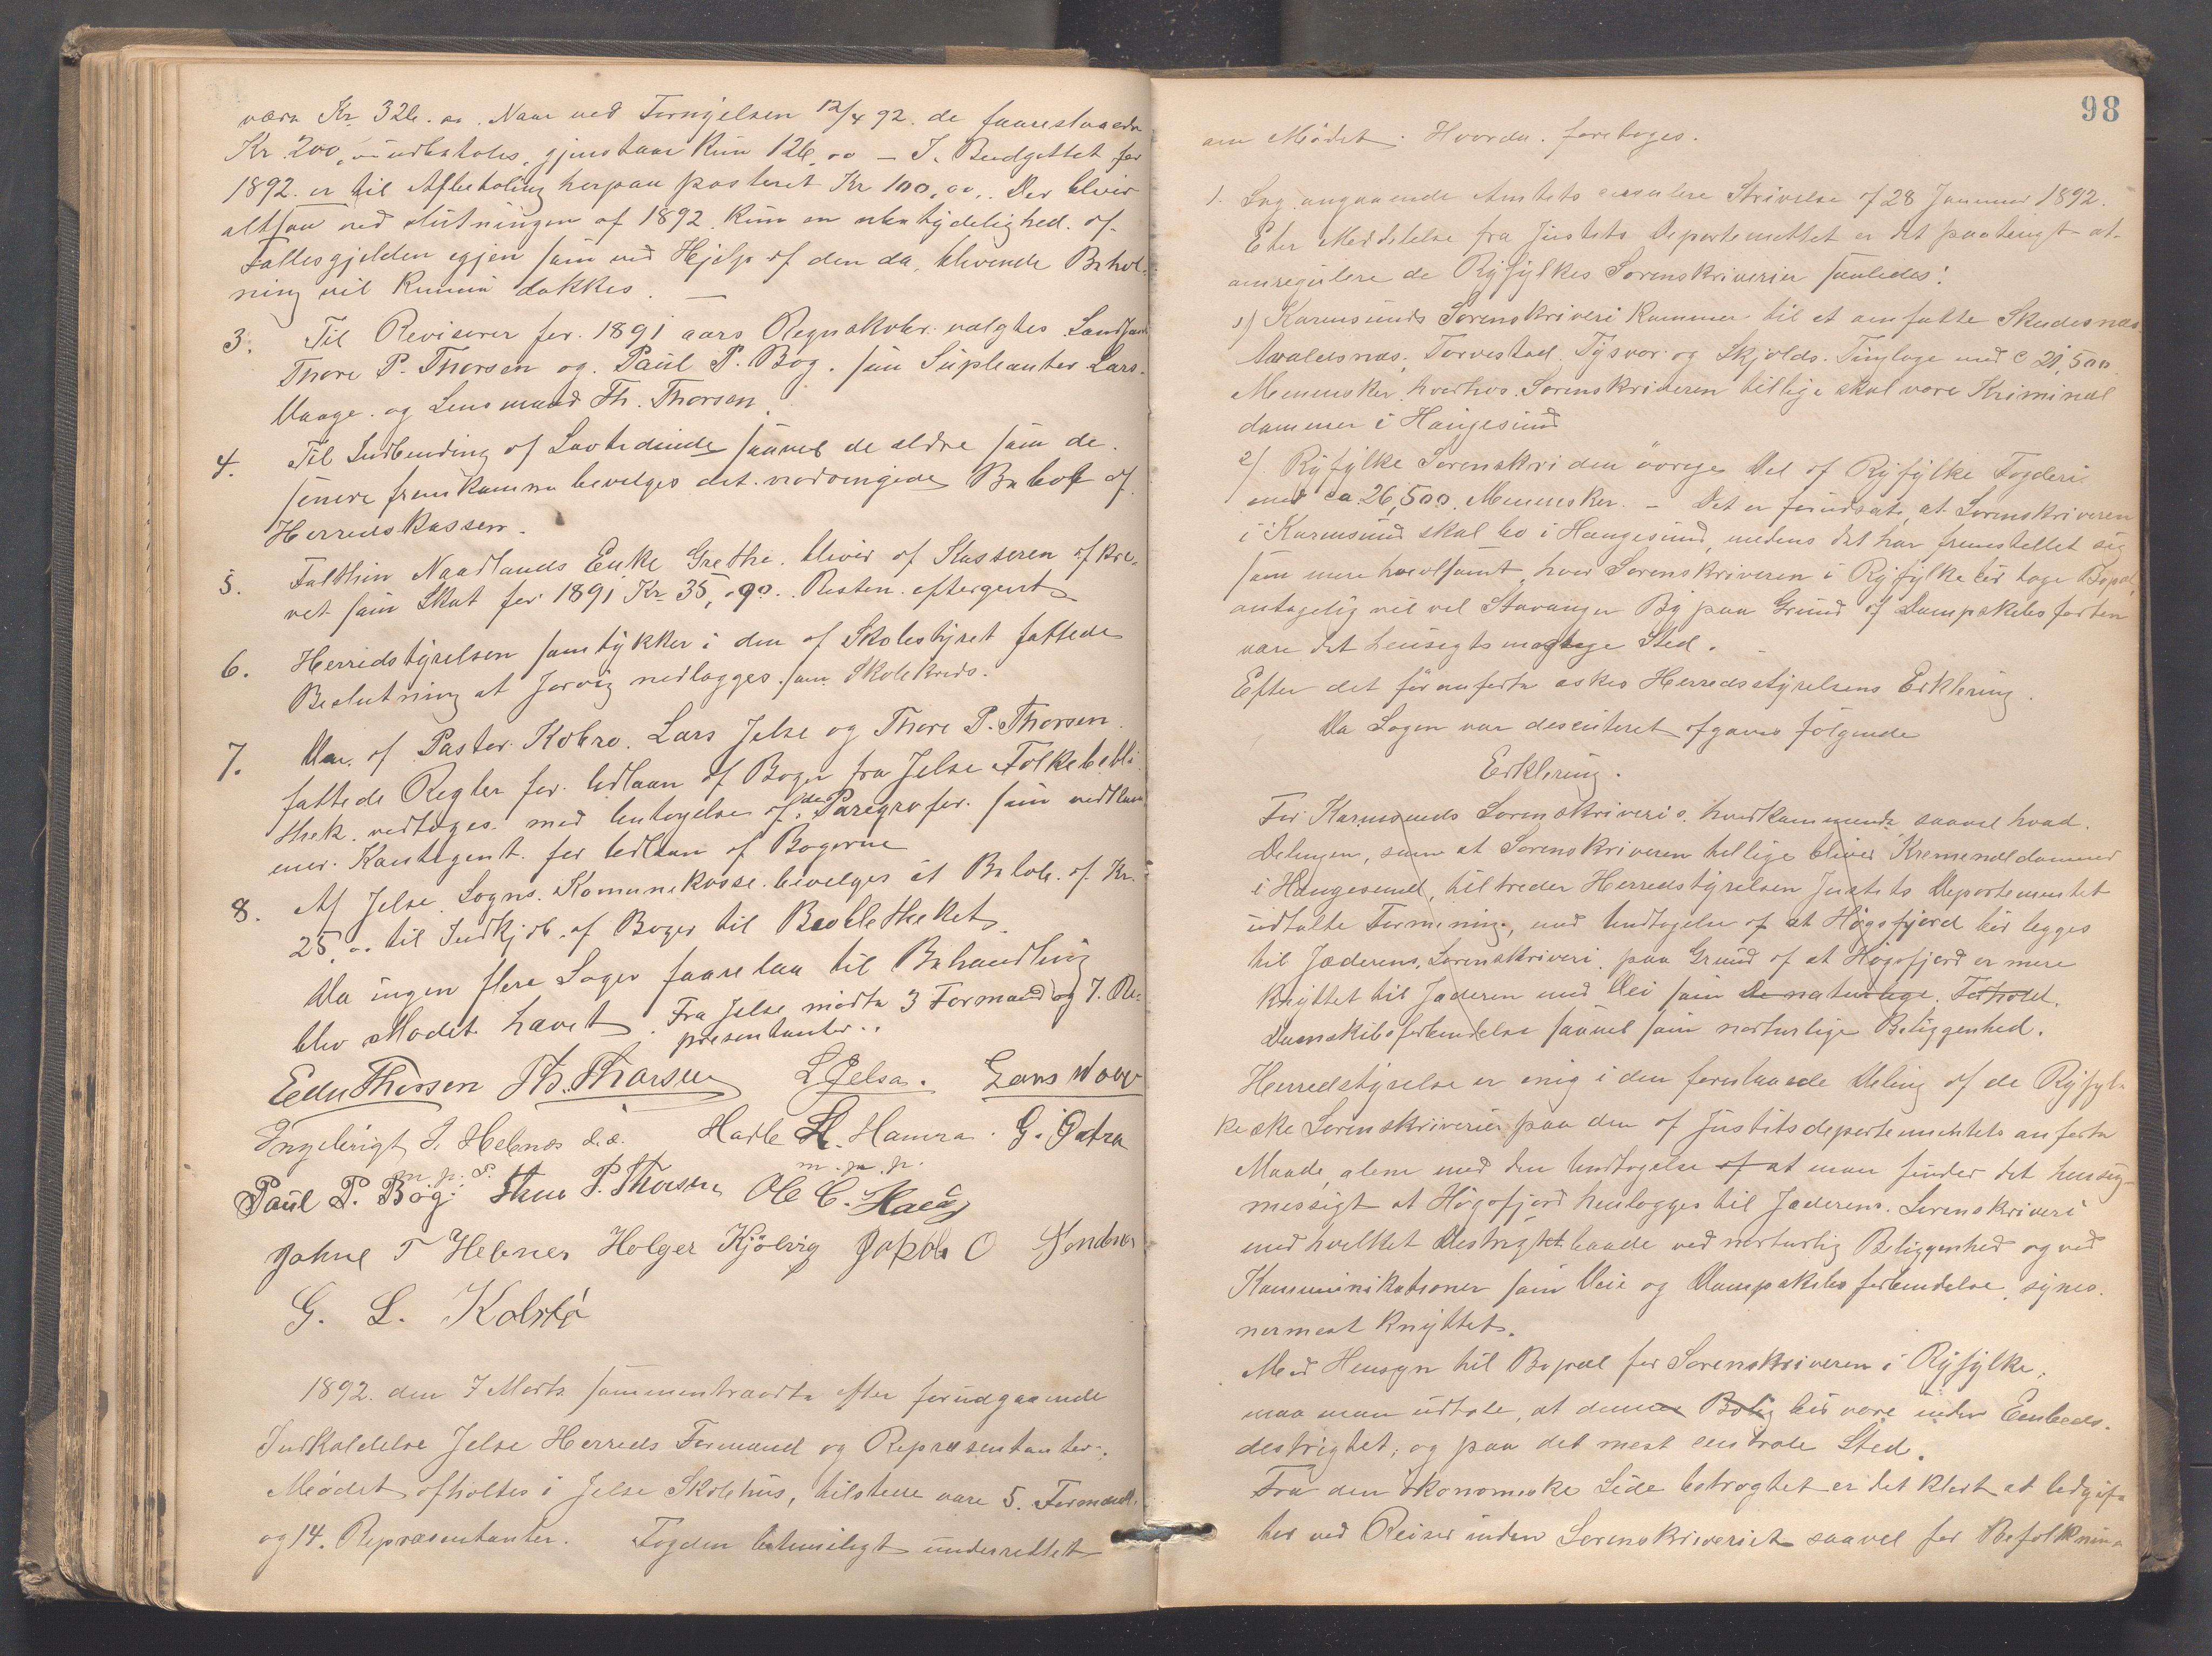 være Kr 326.00. Naar ved Fornyelsen 12/4 92. de faarestaaende
Kr. 200,00 udbetales, gjenstaar kun 126,00 — I. Budgettet for
1892. er til Afbetaling herpaa posteret Kr 100,00,. Der bliver
altsaa ved slutningen af 1892 kun en ubetydelighed. af
Fallesgjelden igjen som ved Hjelp af den da, blivende Behol-
ning vil kunne dækkes. —
3. Til Revisorer for. 1891 aars Regnskaber valgtes Landhand
Thore P. Thorsen og. Paul P. Bog. som Supleanter Lars.
Vaage. og Lensmand Th. Thorsen.
4. Til Indbending af Lovtidende saavel de ældre som de
senere fremkomne bevelges det nødvengide Beløb af
Herredskassen.
5. Falthin Naadlands Enke Grethe. bliver af Kasseren afkre-
vet som Skat for 1891 Kr 35,00. Resten eftergivet
6. Herredstyrelsen samtykker i den af Skolestyret fattede
Beslutning at Jorvig nedlægges som Skolekreds.
7. Den. af Pastor Kobro. Lars Jelse og Thore P. Thorsen
fattede Regler for. Udlaan af Bøger fra Jelse Folkebebli
thek. vedtoges. med Untagelse af de Paregrafer. som vedkom
mer. Kontigent. for Udlaan af Bøgerne
8. Af Jelse Sogns. Komunekasse. bevelges et Beløb. af Kr.
25,00 til Indkjøb af Bøger til Beobletheket.
Da ingen flere Sager faarelaa til Behandling
blev Mødet hævet. Fra Jelse mødte 3 Formænd og 7. Re-
presentanter..
Edv Thessen Th. Thorsen L Jelsa. Lars Voov
Engebrigt J. Hebnes d.æ. Halle H. Hamra. G. Østra
m. p. P. m. p. p.
Paul P. Bog. Thore P. Thorsen Ole C. Haug
Johne T Hebnes Holger Kjølvig Jakob O Sondena
G. L. Kolstø
1892. den 7 Marts sammentraadte efter forudgaaende
Indkaldelse Jelse Herreds Formænd og Representanter.
Mødet afholtes i Jelse Skolehus, tilstede vare 5. Formænd
og 14. Representanter. Fogden betimeligt underrettet
98
om Mødet. Hvorda. foretoges.
1. Sag angaaende Amtets cirsulere Skrivelse af 28 Januar 1892.
Eter Meddelelse fra Justits Departemettet er det paatengt at
omregulere de Ryfylkes Sorenskriverier saaledes:
1) Karmsunds Sorenskriveri kommer til at omfatte Skudesnæs
Avaldsnæs, Torvestad. Tysvær og Skjolds. Tinglage med C 21,500
Mennesker, hvorhos Sorenskriveren tillige skal være Kriminal
dommer i Haugesund
2) Ryfylke Sorenskri den øvrige Del af Ryfylke Fogderi
med ca 26,500 Mennesker. — Det er forudsat, at Sorenskriveren
i Karmsund skal bo i Haugesund, medens det har fremstellet sig
som mere tvevlsomt, hvor Sorenskriveren i Ryfylke bør tage Bopæl,
antagelig vil vel Stavanger By paa Grund af Dampskibsfarten
være det hensigtsmæssige Sted.
Efter det foranførte æskes Herredsstyrelsens Erklering.
Da Sagen var desceuteret afgaves følgende
Erklering.
For Karmsunds Sorenskriveri s. hvedkommende saavel hvad.
Delingen, som at Sorenskriveren tellige bliver Kremenaldommer
i Haugesund, tiltreder Herredstyrelsen Justits Departementet
udtalte Formening, med Undtagelse af at Høgsfjord bør legges
til Jæderens, Sorenskriveri, paa Grund af at Høgsfjord er mere
Knyttet til Jæderen med Vei som De naturlige. Forhold.
Damskibsforbindelse saavel som naturlige Beliggenhed.
Herredstyrelse er enig i den forestaaende Deling af de Ryfyl-
keske Sorenskriverier paa den af Justitsdepartementets anførte
Maade, alene med den Undtagelse af at man finder det hensig-
messigt at Høgsfjord henlægges til Jæderens. Sorenskriveri
med hvelket Destrigtet baade ved naturlig Beliggenhed og ved
Kommunikationer som Veie og Dampskibsforbindelse, synes.
nermest Knyttet.
Med Hensyn til Bopæl for Sorenskriveren i Ryfylke,
maa man udtale, at dennes Bolig bør være inden Embeds-
destrigtet, og paa det mest centrale Sted.
Fra den økonomeske Side betragtet er det klart at Udgif-
ter ved Reiser inden Sorenskriveriet saavel for Befolkning